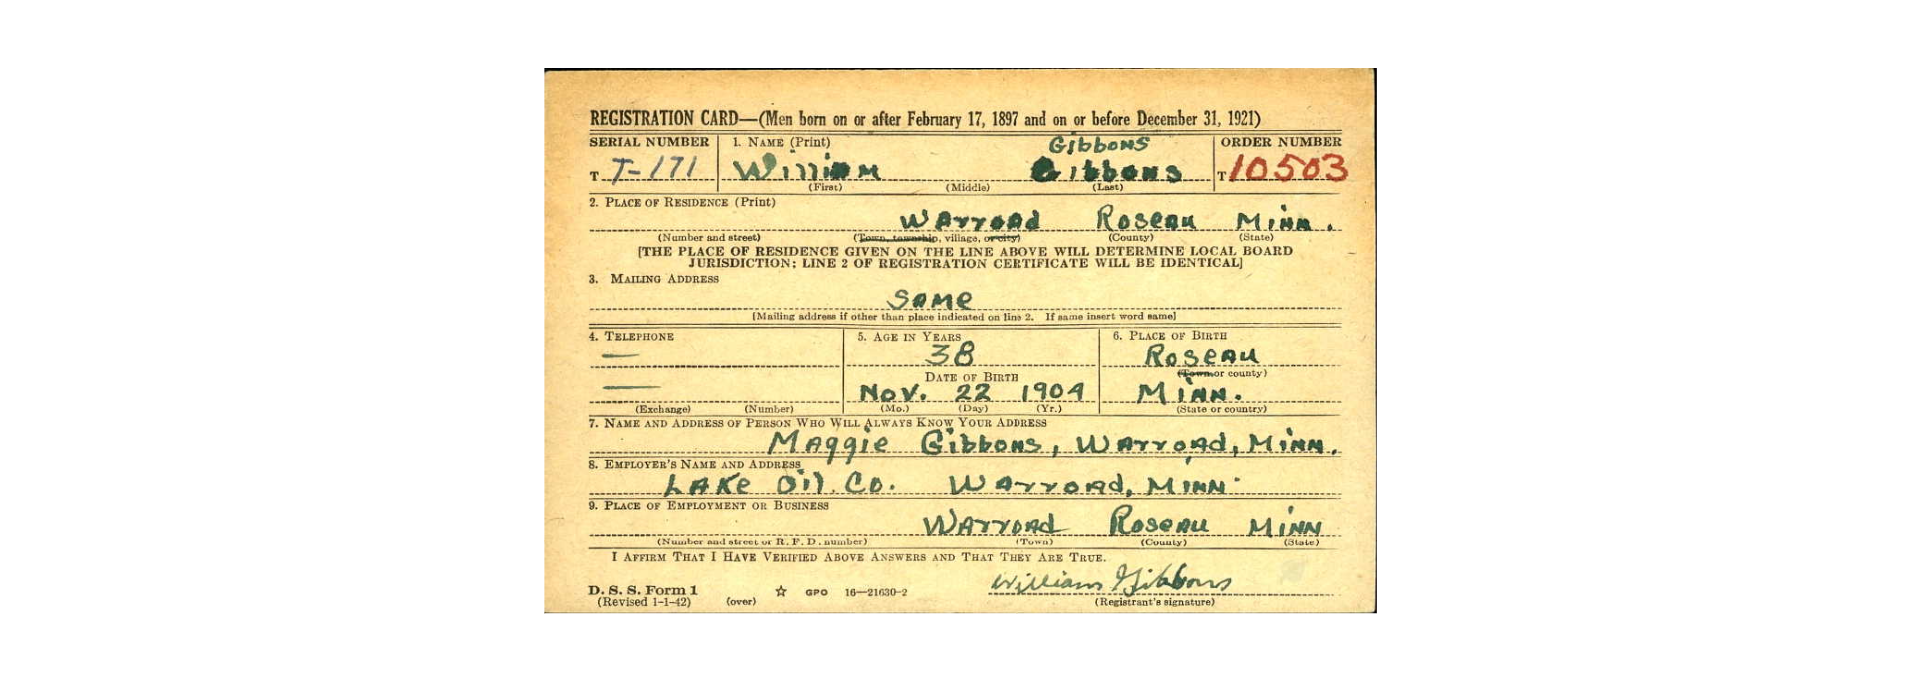 REGISTRATION CARD—(Men born on or after February 17, 1897 and on or before December 31, 1921)
SERIAL NUMBER 1. NAME (Print) Gibbons ORDER NUMBER
T T-171 William Gibbons T 10503
(First) (Middle) (Last)
2. PLACE OF RESIDENCE (Print)
Warroad Roseau Minn.
(Number and street) (Town, township, village, or city) (County) (State)
[THE PLACE OF RESIDENCE GIVEN ON THE LINE ABOVE WILL DETERMINE LOCAL BOARD
JURISDICTION; LINE 2 OF REGISTRATION CERTIFICATE WILL BE IDENTICAL]
3. MAILING ADDRESS
Same
[Mailing address if other than place indicated on line 2. If same insert word same]
4. TELEPHONE 5. AGE IN YEARS 6. PLACE OF BIRTH
— 38 Roseau
DATE OF BIRTH (Town or county)
— Nov. 22 1904 Minn.
(Exchange) (Number) (Mo.) (Day) (Yr.) (State or country)
7. NAME AND ADDRESS OF PERSON WHO WILL ALWAYS KNOW YOUR ADDRESS
Maggie Gibbons, Warroad, Minn.
8. EMPLOYER'S NAME AND ADDRESS
Lake Oil Co. Warroad, Minn.
9. PLACE OF EMPLOYMENT OR BUSINESS
Warroad Roseau Minn
(Number and street or R. F. D. number) (Town) (County) (State)
I AFFIRM THAT I HAVE VERIFIED ABOVE ANSWERS AND THAT THEY ARE TRUE.
William Gibbons
D. S. S. Form 1 ☆ GPO 16—21630-2
(Revised 1-1-42) (over) (Registrant's signature)